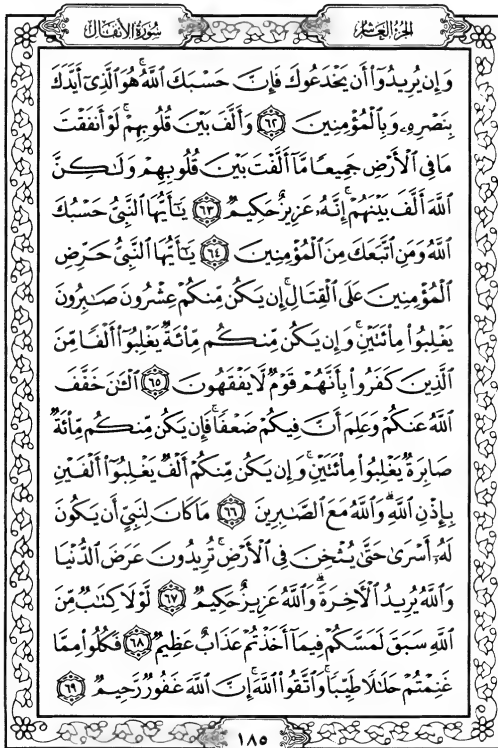 الجزء العاشر
سورة الأنفال
وَإِن يُرِيدُوٓا۟ أَن يَخْدَعُوكَ فَإِنَّ حَسْبَكَ ٱللَّهُ ۚ هُوَ ٱلَّذِىٓ أَيَّدَكَ
بِنَصْرِهِۦ وَبِٱلْمُؤْمِنِينَ ۝٦٢ وَأَلَّفَ بَيْنَ قُلُوبِهِمْ ۚ لَوْ أَنفَقْتَ
مَا فِى ٱلْأَرْضِ جَمِيعًا مَّآ أَلَّفْتَ بَيْنَ قُلُوبِهِمْ وَلَـٰكِنَّ
ٱللَّهَ أَلَّفَ بَيْنَهُمْ ۚ إِنَّهُۥ عَزِيزٌ حَكِيمٌ ۝٦٣ يَـٰٓأَيُّهَا ٱلنَّبِىُّ حَسْبُكَ
ٱللَّهُ وَمَنِ ٱتَّبَعَكَ مِنَ ٱلْمُؤْمِنِينَ ۝٦٤ يَـٰٓأَيُّهَا ٱلنَّبِىُّ حَرِّضِ
ٱلْمُؤْمِنِينَ عَلَى ٱلْقِتَالِ ۚ إِن يَكُن مِّنكُمْ عِشْرُونَ صَـٰبِرُونَ
يَغْلِبُوا۟ مِا۟ئَتَيْنِ ۚ وَإِن يَكُن مِّنكُم مِّا۟ئَةٌ يَغْلِبُوٓا۟ أَلْفًا مِّنَ
ٱلَّذِينَ كَفَرُوا۟ بِأَنَّهُمْ قَوْمٌ لَّا يَفْقَهُونَ ۝٦٥ ٱلْـَٔـٰنَ خَفَّفَ
ٱللَّهُ عَنكُمْ وَعَلِمَ أَنَّ فِيكُمْ ضَعْفًا ۚ فَإِن يَكُن مِّنكُم مِّا۟ئَةٌ
صَابِرَةٌ يَغْلِبُوا۟ مِا۟ئَتَيْنِ ۚ وَإِن يَكُن مِّنكُمْ أَلْفٌ يَغْلِبُوٓا۟ أَلْفَيْنِ
بِإِذْنِ ٱللَّهِ ۗ وَٱللَّهُ مَعَ ٱلصَّـٰبِرِينَ ۝٦٦ مَا كَانَ لِنَبِىٍّ أَن يَكُونَ
لَهُۥٓ أَسْرَىٰ حَتَّىٰ يُثْخِنَ فِى ٱلْأَرْضِ ۚ تُرِيدُونَ عَرَضَ ٱلدُّنْيَا
وَٱللَّهُ يُرِيدُ ٱلْـَٔاخِرَةَ ۗ وَٱللَّهُ عَزِيزٌ حَكِيمٌ ۝٦٧ لَّوْلَا كِتَـٰبٌ مِّنَ
ٱللَّهِ سَبَقَ لَمَسَّكُمْ فِيمَآ أَخَذْتُمْ عَذَابٌ عَظِيمٌ ۝٦٨ فَكُلُوا۟ مِمَّا
غَنِمْتُمْ حَلَـٰلًا طَيِّبًا ۚ وَٱتَّقُوا۟ ٱللَّهَ ۚ إِنَّ ٱللَّهَ غَفُورٌ رَّحِيمٌ ۝٦٩
١٨٥